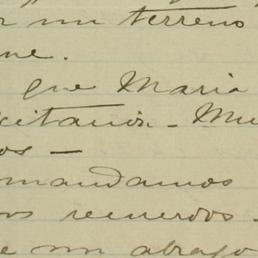 r un terreno
ne.
que Maria
citanos - Mu
os -
mandamos
os recuerdos -
e un abrazo